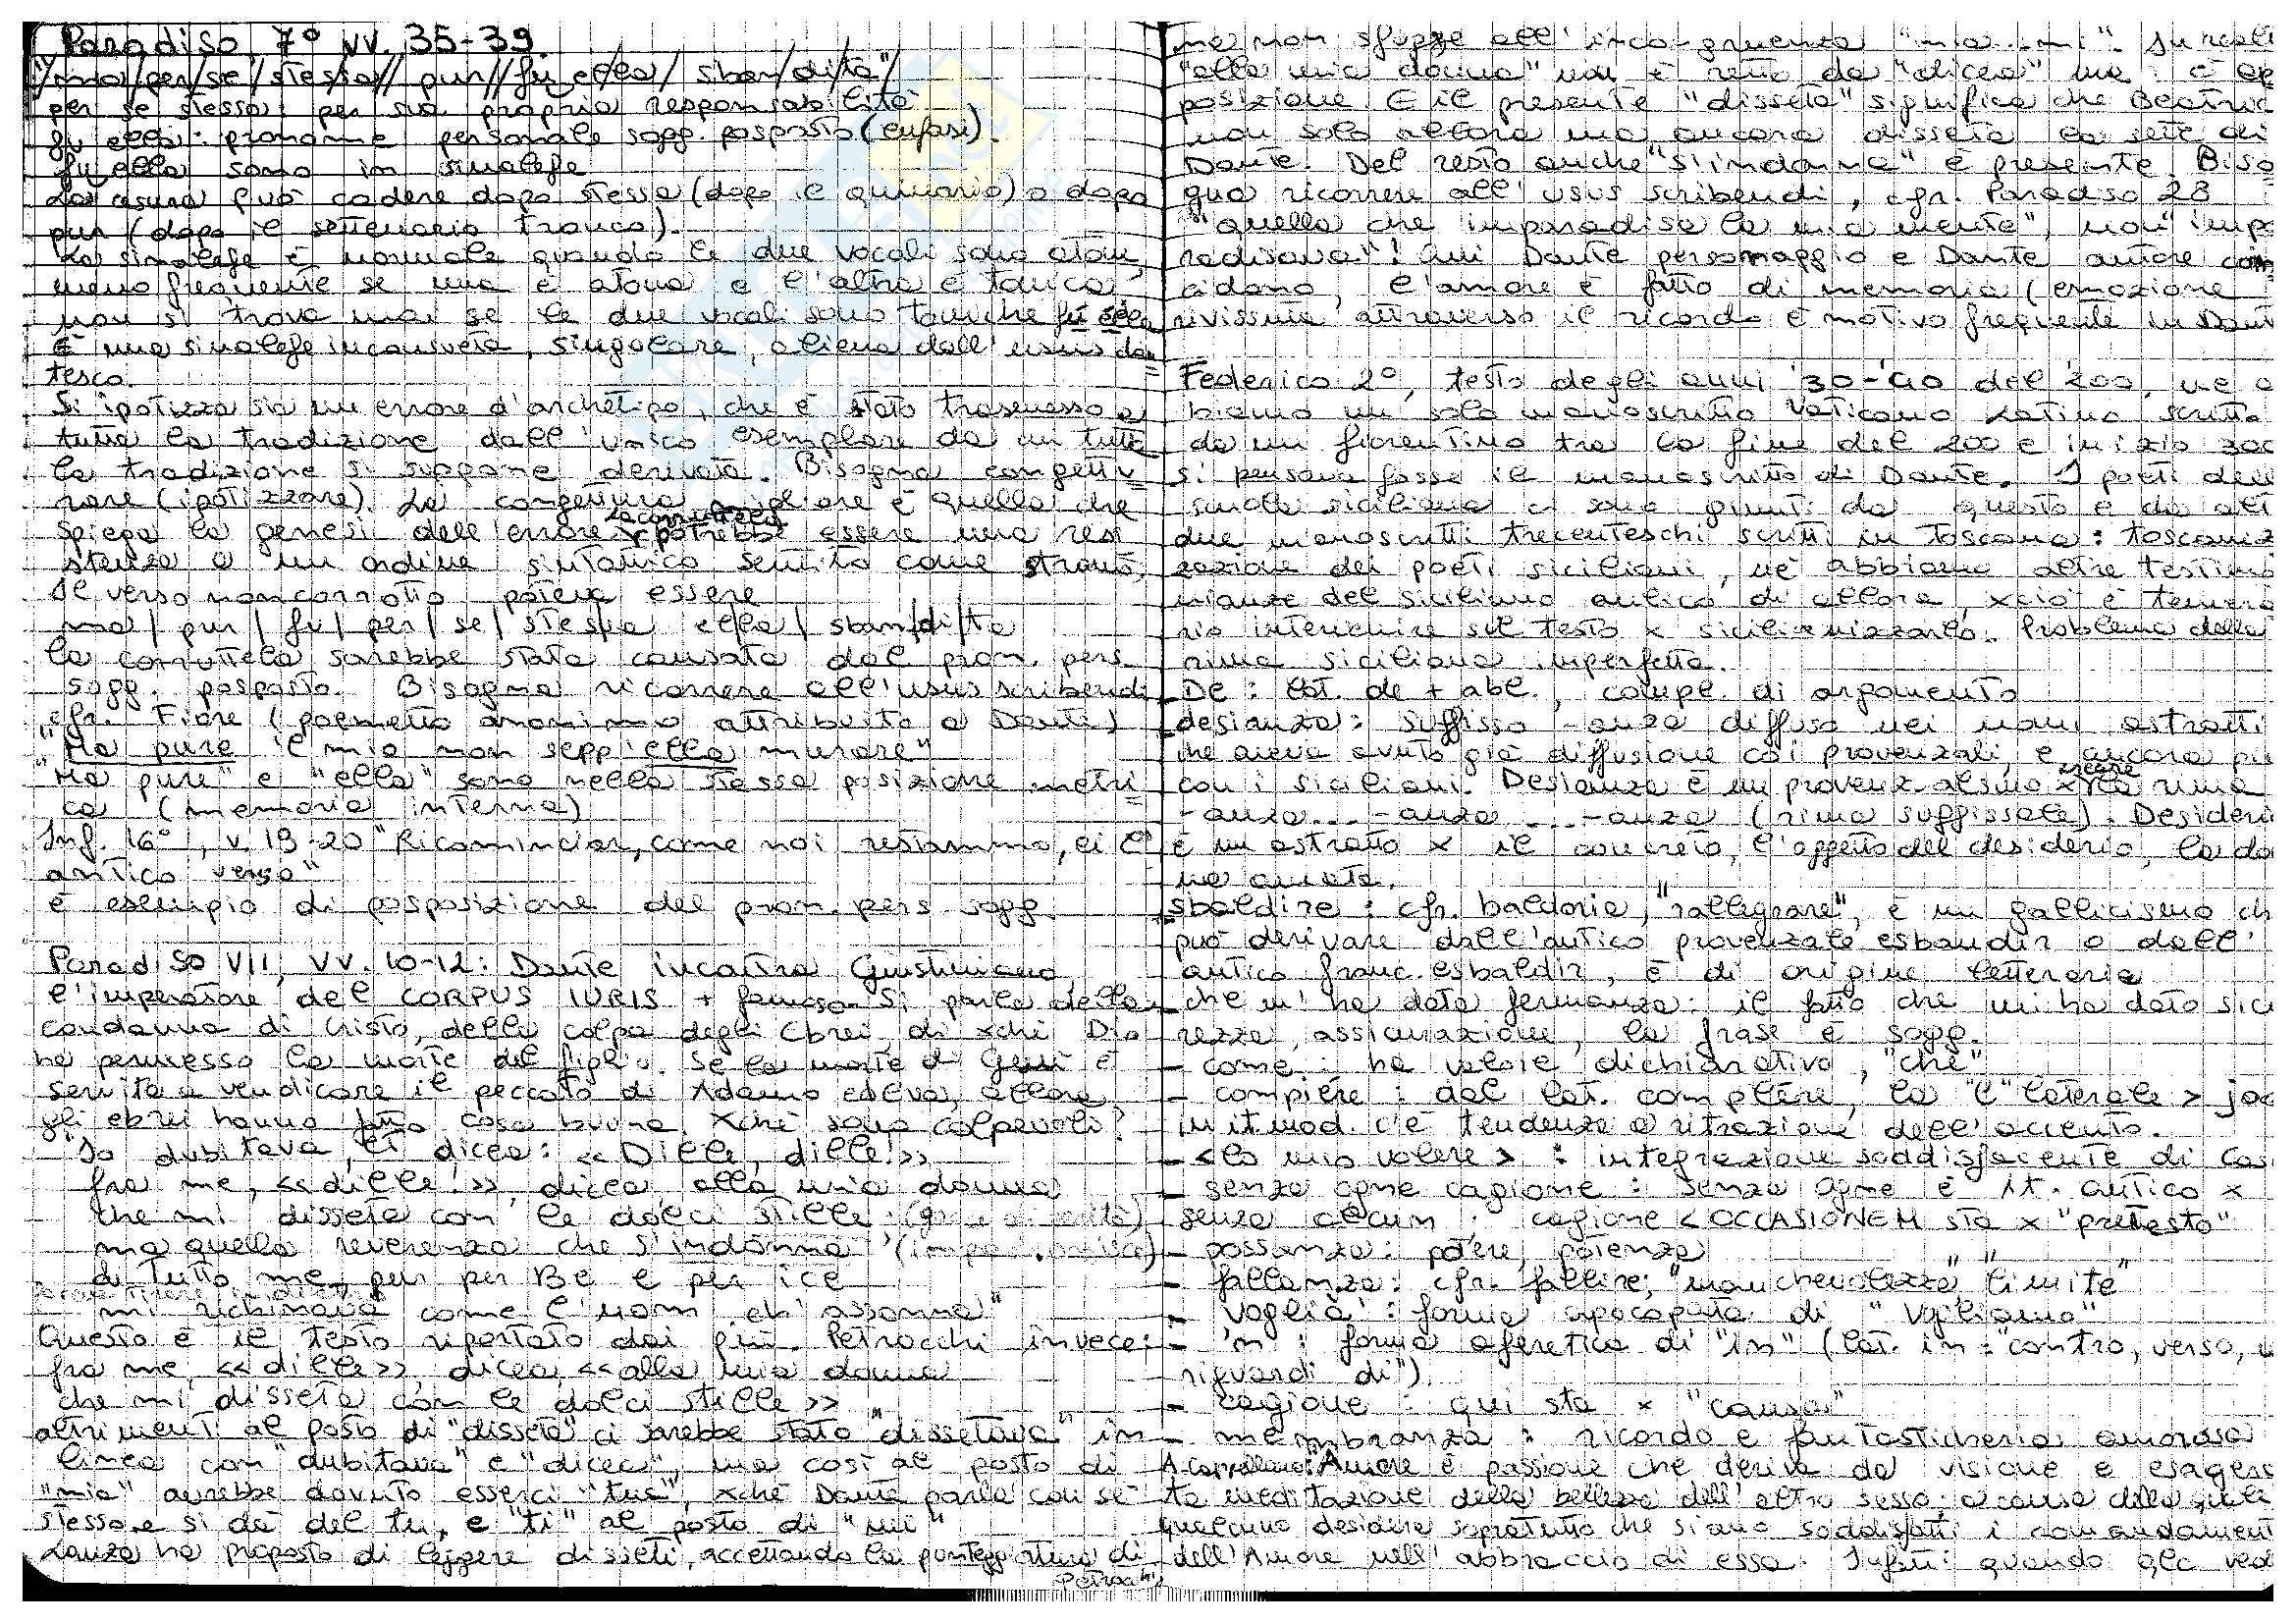 Paradiso 7° vv. 35-39.
"/ma/per/se/stessa// pur//fu ella/ sban/dita"/
per se stessa: per sua propria responsabilità
fu ella: pronome personale sogg. posposto (enfasi).
fu ella sono in sinalefe
La cesura può cadere dopo stessa (dopo il quinario) o dopo
pur (dopo il settenario tronco).
La sinalefe è normale quando le due vocali sono atone,
meno frequente se una è atona e l'altra è tonica,
non si trova mai se le due vocali sono toniche fu ella
È una sinalefe inconsueta, singolare, aliena dall'usus dan
tesco.
Si ipotizza sia un errore d'archetipo, che è stato trasmesso a
tutta la tradizione dall'unico esemplare da cui tutta
la tradizione si suppone derivata. Bisogna congettu
rare (ipotizzare). La congettura migliore è quella che
spiega la genesi dell'errore. La corruttela potrebbe essere una resi
stenza a un ordine sintattico sentito come strano.
Il verso non corrotto poteva essere
ma/ pur/ fu/ per/ se/ stessa ella/ sban/di/ta
la corruttela sarebbe stata causata dal pron. pers.
sogg. posposto. Bisogna ricorrere all'usus scribendi
cfr. Fiore (poemetto anonimo attribuito a Dante)
"Ma pure il mio non sepp'ella murare"
"Ma pure" e "ella" sono nella stessa posizione metri
ca (memoria interna)
Inf. 16°, v. 19-20 "Ricominciar, come noi restammo, ei l'
antico verso"
è esempio di posposizione del pron. pers. sogg.
Paradiso VII, vv. 10-12: Dante incontra Giustiniano,
l'imperatore del CORPUS IURIS + famoso. Si parla della
condanna di Cristo, della colpa degli Ebrei, di xché Dio
ha permesso la morte del figlio. Se la morte di Gesù è
servita a vendicare il peccato di Adamo ed Eva, allora
gli ebrei hanno fatto cosa buona. Xché sono colpevoli?
"Io dubitava, e dicea: «Dille, dille!»
fra me, «dille!», dicea, alla mia donna
che mi disseta con le dolci stille
ma quella reverenza che s'indonna
di tutto me, pur per Be e per ice
mi richinava come l'uom ch'assonna"
Questo è il testo riportato dai più. Petrocchi invece:
fra me, «dille» dicea, «alla mia donna
che mi disseta con le dolci stille»
altrimenti al posto di "disseta" ci sarebbe stato "dissetava" in
linea con "dubitava" e "dicea", ma così al posto di
"mia" avrebbe dovuto esserci "tua", xché Dante parla con sé
stesso e si dà del tu, e "ti" al posto di "mi"
Lanza ha proposto di leggere disseti, accettando la punteggiatura di
Petrocchi,
ma non sfugge all'incongruenza "mia...mi". In reali
"alla mia donna" non è retto da "dicea" ma è ap
posizione. E il presente "disseta" significa che Beatric
non solo allora ma ancora disseta la sete di
Dante. Del resto anche "s'indonna" è presente. Biso
gna ricorrere all'usus scribendi, cfr. Paradiso 28
"quella che imparadisa la mia mente", non "impa
radisava"! Qui Dante personaggio e Dante autore coin
cidono, l'amore è fatto di memoria (emozione
rivissuta attraverso il ricordo è motivo frequente in Dant
Federico 2°, testo degli anni '30-'40 del 200, ne a
biamo un solo manoscritto Vaticano Latino scritto
da un fiorentino tra la fine del 200 e inizio 300
si pensava fosse il manoscritto di Dante. I poeti dell
scuola siciliana ci sono giunti da questo e da alt
due manoscritti trecenteschi scritti in Toscana: toscaniz
zazione dei poeti siciliani, né abbiamo altre testimo
nianze del siciliano antico di allora, xciò è temera
rio intervenire sul testo x sicilianizzarlo. Problema della
rima siciliana imperfetta.
- De: lat. de + abl., compl. di argomento
- desianza: suffisso -anza diffuso nei nomi astratti
che aveva avuto già diffusione coi provenzali, e ancora più
con i siciliani. Desianza è un provenzalismo x creare la rima
-anza...-anza...-anza (rima suffissale). Desideri
è un astratto x il concreto, l'oggetto del desiderio, la do
na amata.
- sbaldire: cfr. baldoria, "rallegrare", è un gallicismo ch
può derivare dall'antico provenzale esbaudir o dall'
antico franc. esbaldir, è di origine letteraria
- che m'ha data fermanza: il fatto che mi ha dato sicu
rezza, assicurazione, la frase è sogg.
- come: ha valore dichiarativo, "che"
- compiére: dal lat. complēre, la "l" laterale > jod
in it. mod. c'è tendenza a ritrazione dell'accento.
- <lo mio volere>: integrazione soddisfacente di Cas
- senza ogne cagione: senza ogne è it. antico x
senza alcun; cagione < OCCASIONEM sta x "pretesto"
- possanza: potere, potenza
- fallanza: cfr. fallire; "manchevolezza" "limite"
- vogliã: forma apocopata di "vogliamo"
- 'n: forma aferetica di "in" (lat. in = "contro, verso,
riguardi di").
- cagione: qui sta x "causa"
- membranza: ricordo e fantasticheria amorosa
A. Cappellano: "Amore è passione che deriva da visione e esagera
ta meditazione della bellezza dell'altro sesso, a causa della quale
qualcuno desidera soprattutto che siano soddisfatti i comandament
dell'Amore nell'abbraccio di essa. Infatti quando